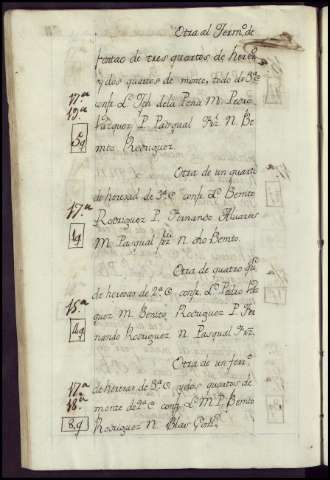 Otra al Termo. de
tontao de tres quartos de hered.
y dos quartos de monte, todo de 3ª
17.ª
19.ª
confr. L. Tch. dela Peña M. Pedro
Vazquez P. Pasqual Frz. N. Be
5q
nito Rodriguez
Otra de un quarto
de heredad de 3ª C confr. L. Benito
17.ª
Rodriguez P. Fernando Alvares
1q
M. Pasqual frz. N. dho Benito
Otra de quatro qu.
de heredad de 2ª C confr. L. Pedro Vaz
15.ª
quez M. Benito Rodriguez P. Fer
4q
nando Rodriguez N. Pasqual Frz.
Otra de un ferr.
17.ª
18.ª
de heredad de 3ª C y dos quartos de
monte de 2ª C confr. L. M. P. Benito
8q
Rodriguez N. Blas Gonz.